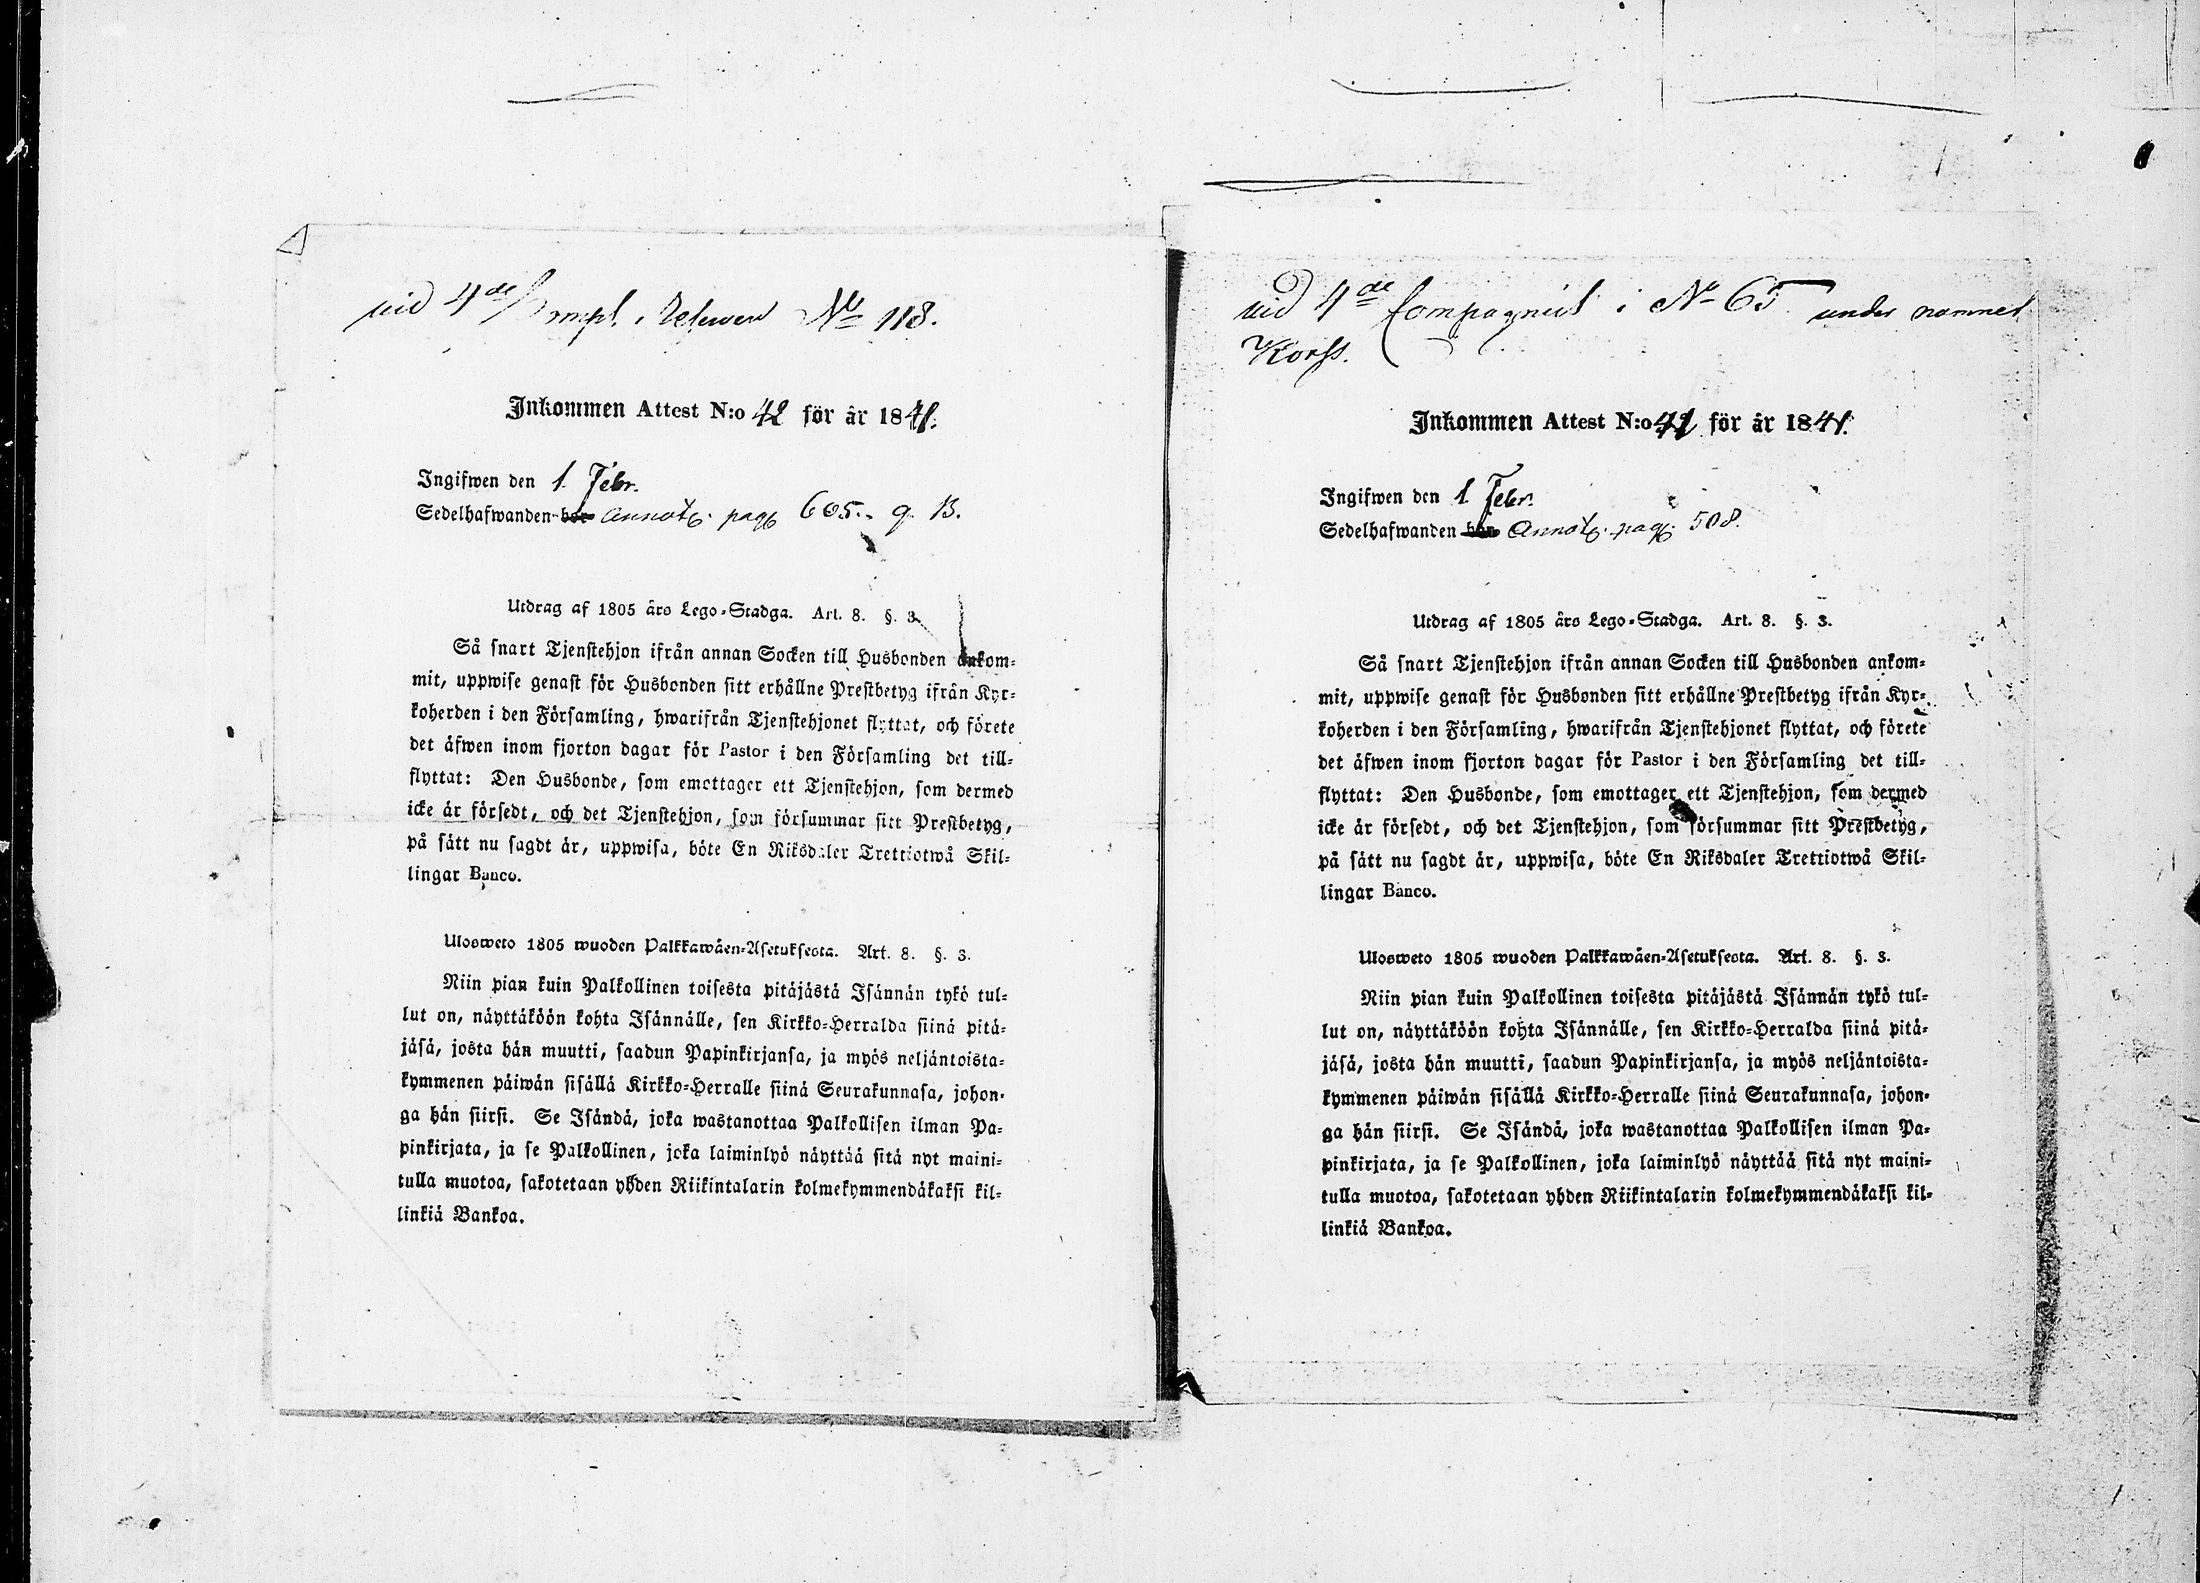 vid 4de Compl. Reserven No 118.
Inkommen Attest N:o 42 för år 1841.
Ingifwen den 1. Febr.
Sedelhafwanden bor Annot. pag 605. q. B.
Utdrag af 1805 års Lego-Stadga. Art. 8. §. 3.
Så snart Tjenstehjon ifrån annan Socken till Husbonden ankom-
mit, uppwise genast för Husbonden sitt erhållne Prestbetyg ifrån Kyr-
koherden i den Församling, hwarifrån Tjenstehjonet flyttat, och förete
det äfwen inom fjorton dagar för Pastor i den Församling det till-
flyttat: Den Husbonde, som emottager ett Tjenstehjon, som dermed
icke är försedt, och det Tjenstehjon, som försummar sitt Prestbetyg,
på sätt nu sagdt är, uppwisa, böte En Riksdaler Trettiotwå Skil-
lingar Banco.
Ulosweto 1805 wuoden Palkkawäen-Asetuksesta. Art. 8. §. 3.
Niin pian kuin Palkollinen toisesta pitäjästä Isännän tykö tul-
lut on, näyttäköön kohta Isännälle, sen Kirkko-Herralda siinä pitä-
jäsä, josta hän muutti, saadun Papinkirjansa, ja myös neljäntoista-
kymmenen päiwän sisällä Kirkko-Herralle siinä Seurakunnasa, johon-
ga hän siirsi. Se Isändä, joka wastanottaa Palkollisen ilman Pa-
pinkirjata, ja se Palkollinen, joka laiminlyö näyttää sitä nyt maini-
tulla muotoa, sakotetaan yhden Riikintalarin kolmekymmendäkaksi kil-
linkiä Bankoa.
vid 4de Compagniet i No 65 under namnet
Korss.
Inkommen Attest N:o 41 för år 1841.
Ingifwen den 1. Febr.
Sedelhafwanden bor Annot. pag. 508.
Utdrag af 1805 års Lego-Stadga. Art. 8. §. 3.
Så snart Tjenstehjon ifrån annan Socken till Husbonden ankom-
mit, uppwise genast för Husbonden sitt erhållne Prestbetyg ifrån Kyr-
koherden i den Församling, hwarifrån Tjenstehjonet flyttat, och förete
det äfwen inom fjorton dagar för Pastor i den Församling det till-
flyttat: Den Husbonde, som emottager ett Tjenstehjon, som dermed
icke är försedt, och det Tjenstehjon, som försummar sitt Prestbetyg,
på sätt nu sagdt är, uppwisa, böte En Riksdaler Trettiotwå Skil-
lingar Banco.
Ulosweto 1805 wuoden Palkkawäen-Asetuksesta. Art. 8. §. 3.
Niin pian kuin Palkollinen toisesta pitäjästä Isännän tykö tul-
lut on, näyttäköön kohta Isännälle, sen Kirkko-Herralda siinä pitä-
jäsä, josta hän muutti, saadun Papinkirjansa, ja myös neljäntoista-
kymmenen päiwän sisällä Kirkko-Herralle siinä Seurakunnasa, johon-
ga hän siirsi. Se Isändä, joka wastanottaa Palkollisen ilman Pa-
pinkirjata, ja se Palkollinen, joka laiminlyö näyttää sitä nyt maini-
tulla muotoa, sakotetaan yhden Riikintalarin kolmekymmendäkaksi kil-
linkiä Bankoa.